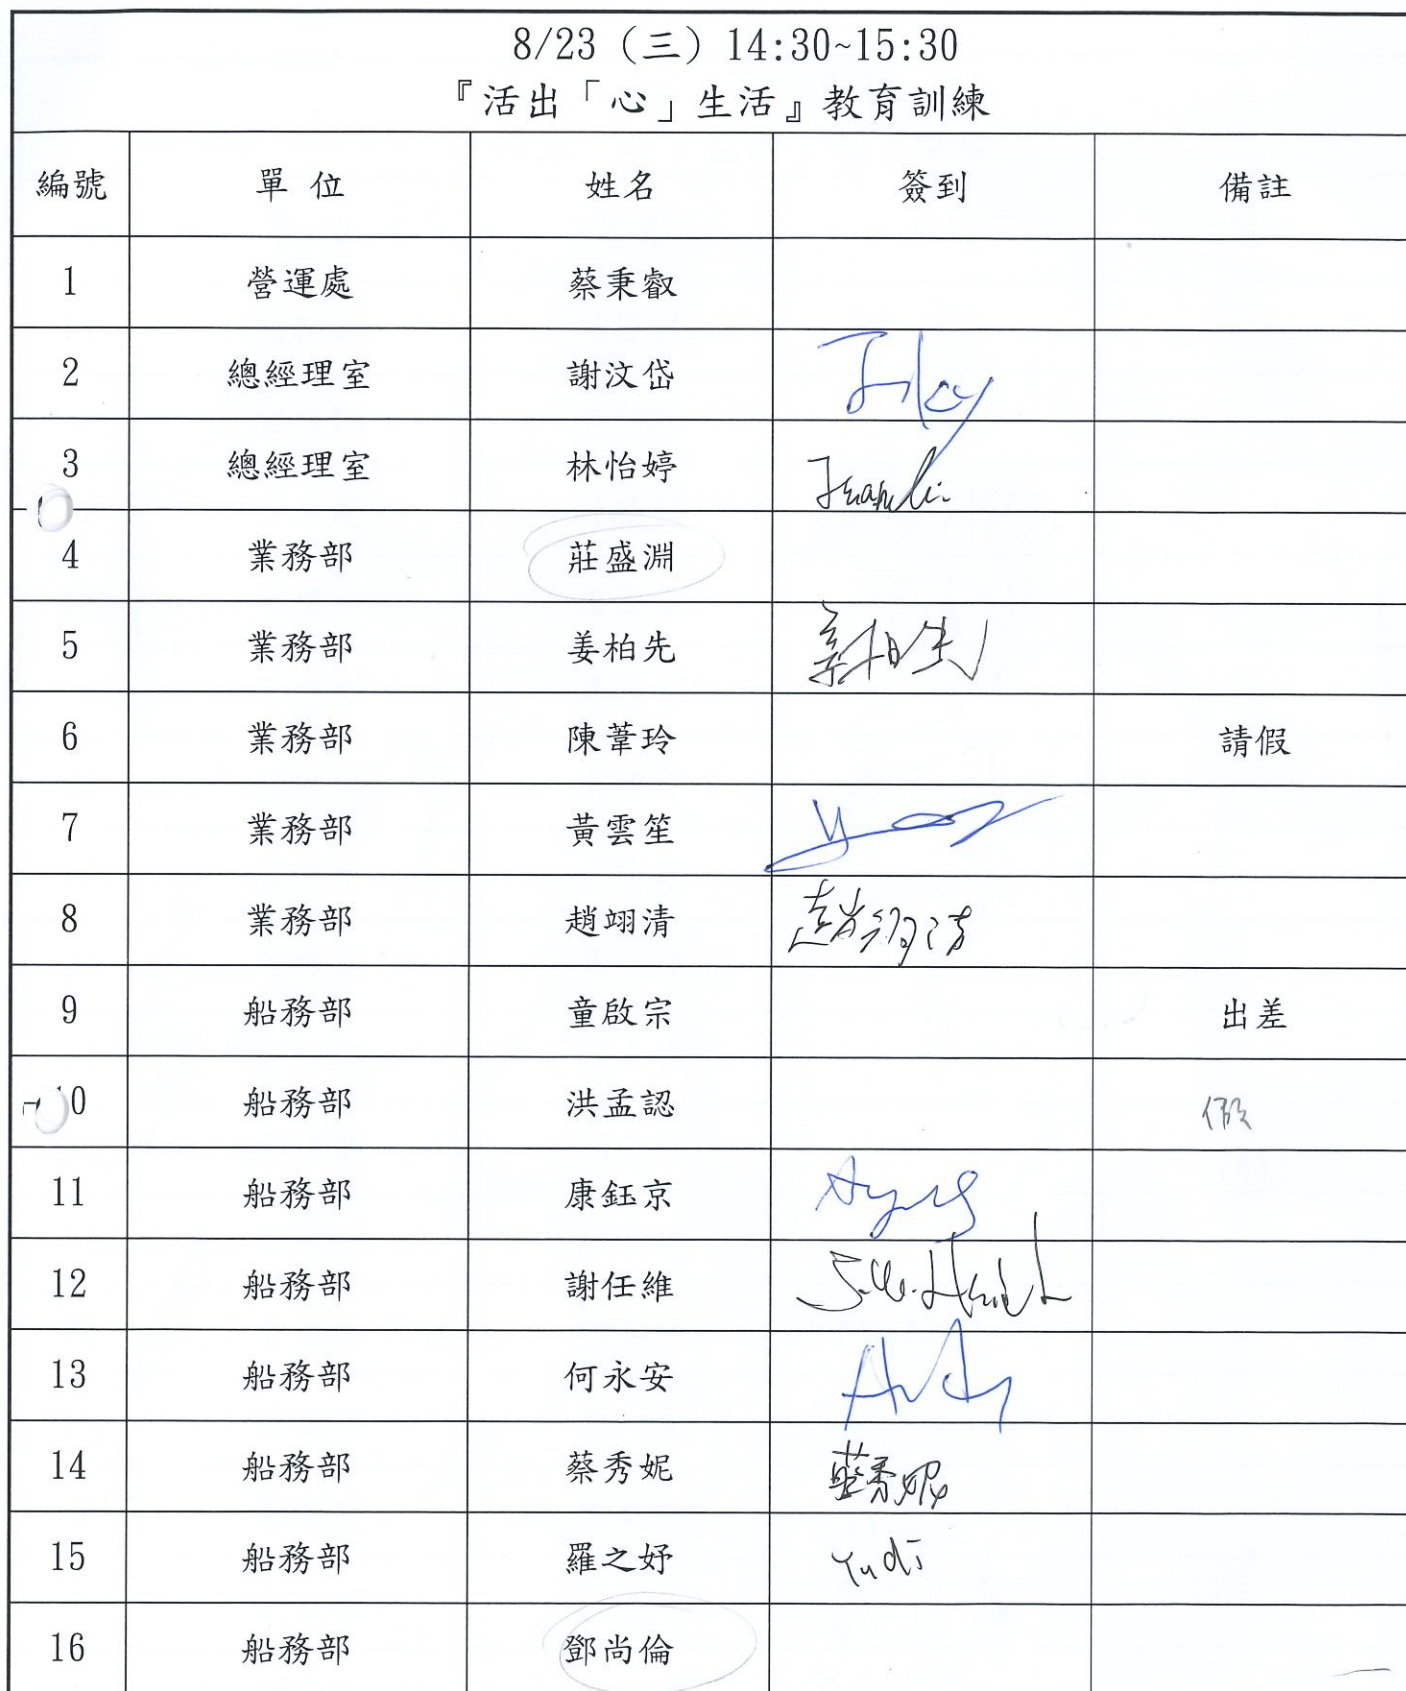 8/23（三）14:30~15:30
『活出「心」生活』教育訓練
編號 單 位 姓名 簽到 備註
1 營運處 蔡秉叡
2 總經理室 謝汶岱
3 總經理室 林怡婷
4 業務部 莊盛淵
5 業務部 姜柏先 姜柏先
6 業務部 陳葦玲 請假
7 業務部 黃雲笙
8 業務部 趙翊清 趙翊清
9 船務部 童啟宗 出差
10 船務部 洪孟認 假
11 船務部 康鈺京
12 船務部 謝任維
13 船務部 何永安 Andy
14 船務部 蔡秀妮 蔡秀妮
15 船務部 羅之妤 Yudi
16 船務部 鄧尚倫